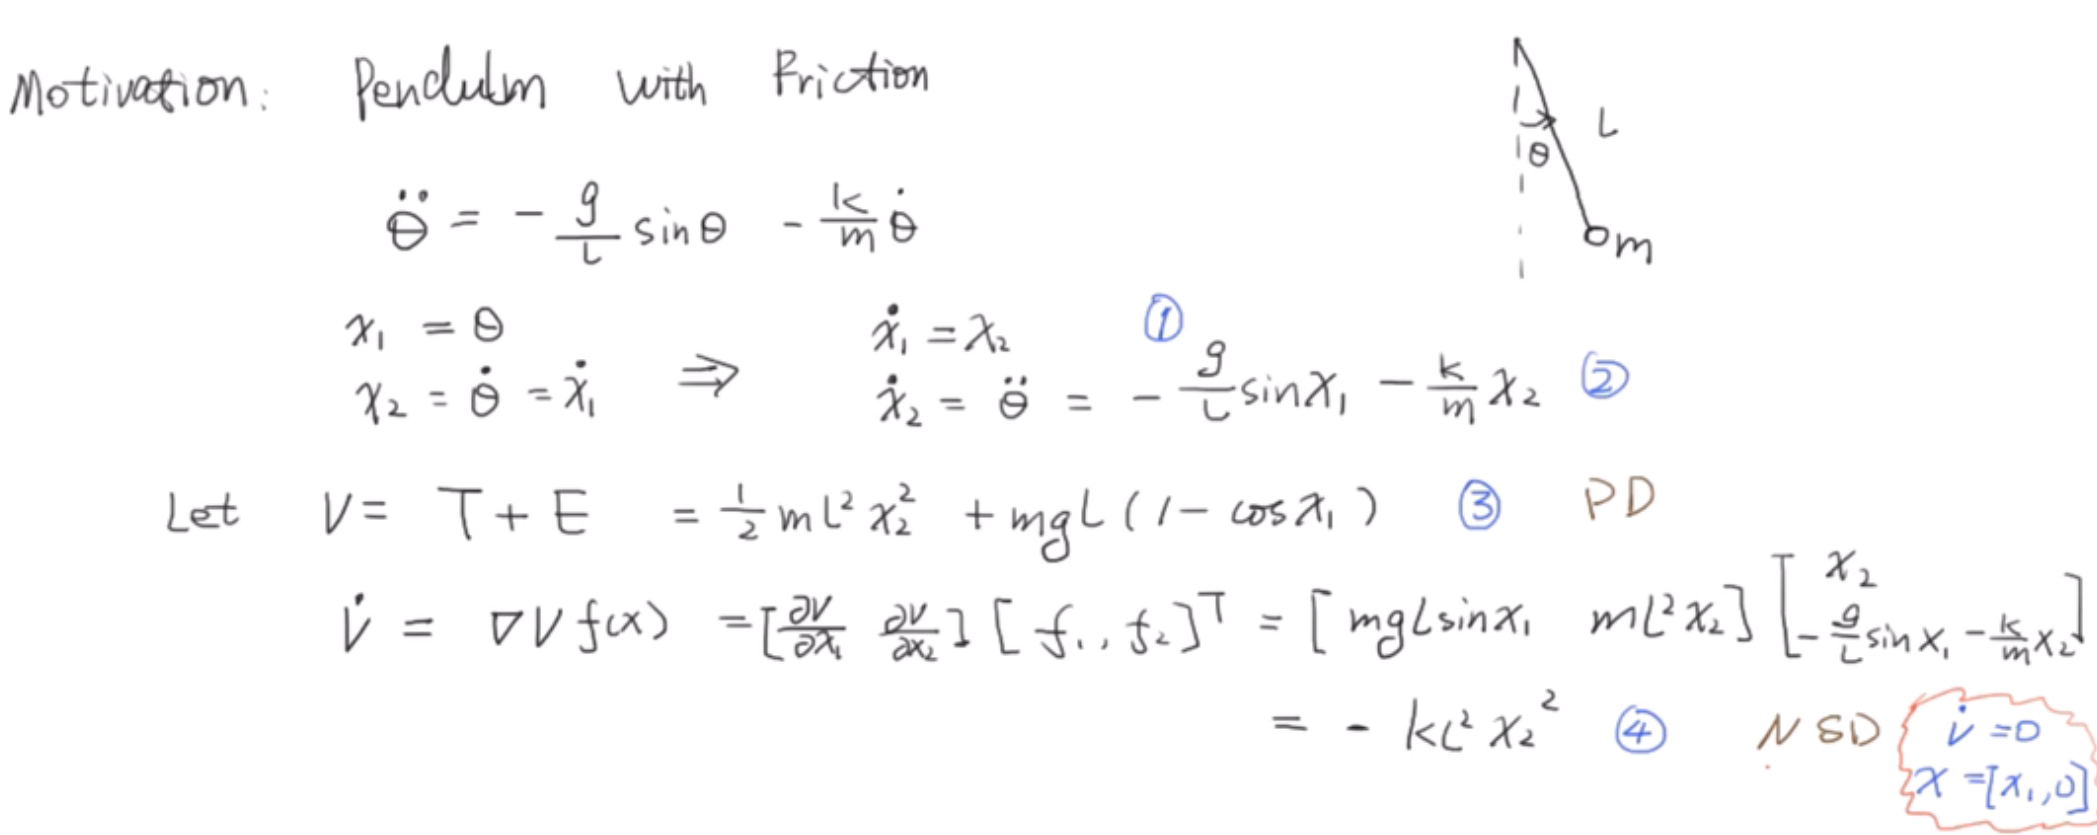 Motivation: Pendulm with Friction
L
θ
m
θ̈ = - g/L sinθ - k/m θ̇
x₁ = θ
x₂ = θ̇ = ẋ₁ ⇒
ẋ₁ = x₂ ①
ẋ₂ = θ̈ = - g/L sinx₁ - k/m x₂ ②
Let V = T + E = 1/2 mL² x₂² + mgL(1 - cosx₁) ③ PD
V̇ = ∇V f(x) = [∂V/∂x₁ ∂V/∂x₂] [f₁, f₂]ᵀ = [mgLsinx₁ mL²x₂] [x₂ ; -g/L sinx₁ - k/m x₂]
= - kL² x₂² ④ NSD
V̇ = 0
x = [x₁, 0]